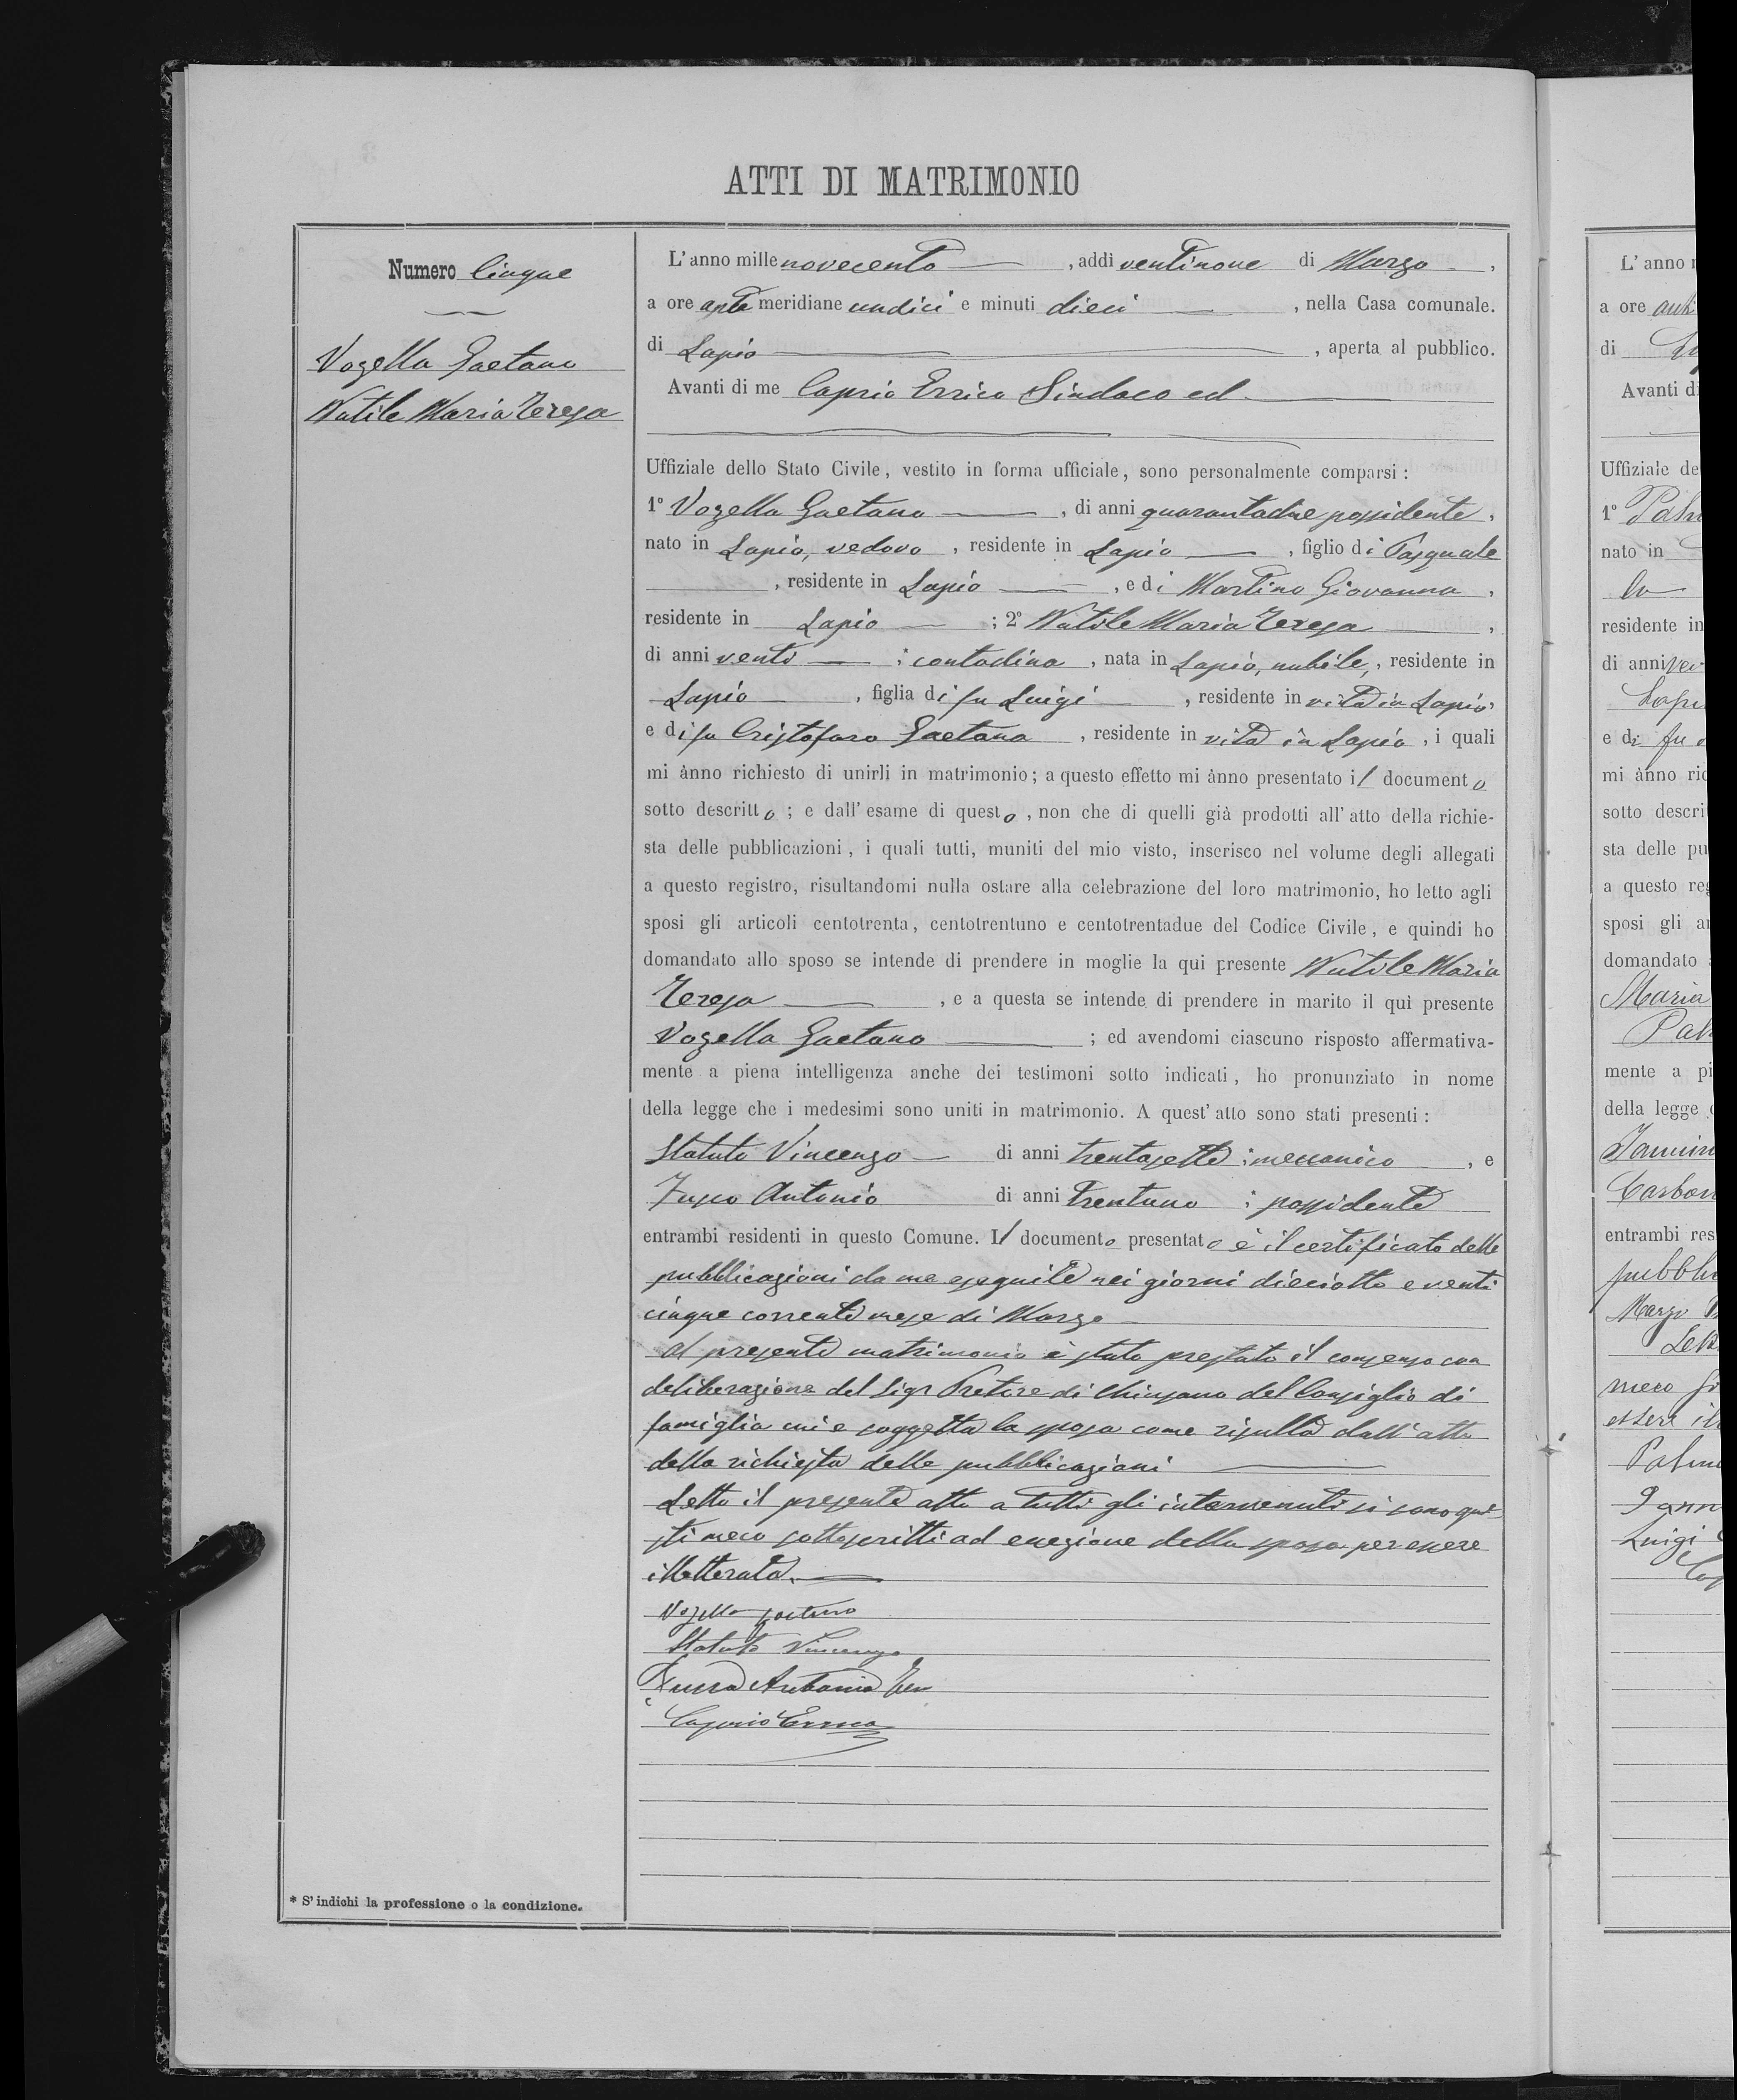 ATTI DI MATRIMONIO
Numero Cinque
Vozella Gaetano
Nutile Maria Teresa
L'anno mille novecento, addì ventinove di Marzo,
a ore ante meridiane undici e minuti dieci, nella Casa comunale.
di Lapio, aperta al pubblico.
Avanti di me Caprio Errico Sindaco ed
Uffiziale dello Stato Civile, vestito in forma ufficiale, sono personalmente comparsi:
1º Vozella Gaetano, di anni quarantadue possidente,
nato in Lapio, vedovo, residente in Lapio, figlio di Pasquale
, residente in Lapio, e di Martino Giovanna,
residente in Lapio; 2º Nutile Maria Teresa,
di anni venti; contadina, nata in Lapio, nubile, residente in
Lapio, figlia di fu Luigi, residente in vita in Lapio,
e di fu Cristofaro Gaetana, residente in vita in Lapio, i quali
mi ànno richiesto di unirli in matrimonio; a questo effetto mi ànno presentato il documento
sotto descritto; e dall'esame di questo, non che di quelli già prodotti all'atto della richie-
sta delle pubblicazioni, i quali tutti, muniti del mio visto, inserisco nel volume degli allegati
a questo registro, risultandomi nulla ostare alla celebrazione del loro matrimonio, ho letto agli
sposi gli articoli centotrenta, centotrentuno e centotrentadue del Codice Civile, e quindi ho
domandato allo sposo se intende di prendere in moglie la qui presente Nutile Maria
Teresa, e a questa se intende di prendere in marito il qui presente
Vozella Gaetano; ed avendomi ciascuno risposto affermativa-
mente a piena intelligenza anche dei testimoni sotto indicati, ho pronunziato in nome
della legge che i medesimi sono uniti in matrimonio. A quest'atto sono stati presenti:
Statuto Vincenzo di anni trentasette; meccanico, e
Fusco Antonio di anni trentuno; possidente
entrambi residenti in questo Comune. Il documento presentato è il certificato delle
pubblicazioni da me eseguite nei giorni dieciotto e venti
cinque corrente mese di Marzo
Al presente matrimonio è stato prestato il consenso con
deliberazione del Sigr Pretore di Chiusano del Consiglio di
famiglia cui è soggetta la sposa come risulta dall'atto
della richiesta delle pubblicazioni
Letto il presente atto a tutti gli intervenuti si sono que-
sti meco sottoscritti ad eccezione della sposa per essere
illetterata.
Vozella Gaetano
Statuto Vincenzo
Fusco Antonio
Caprio Errico
* S'indichi la professione o la condizione.
L'anno
a ore
di
Avanti di
Uffiziale de
1º
nato in
residente in
di anni
e di fu
mi ànno ric
sotto descri
sta delle pu
a questo reg
sposi gli a
domandato
Maria
mente a pi
della legge
entrambi res
Marzo
meco
essere
Luigi